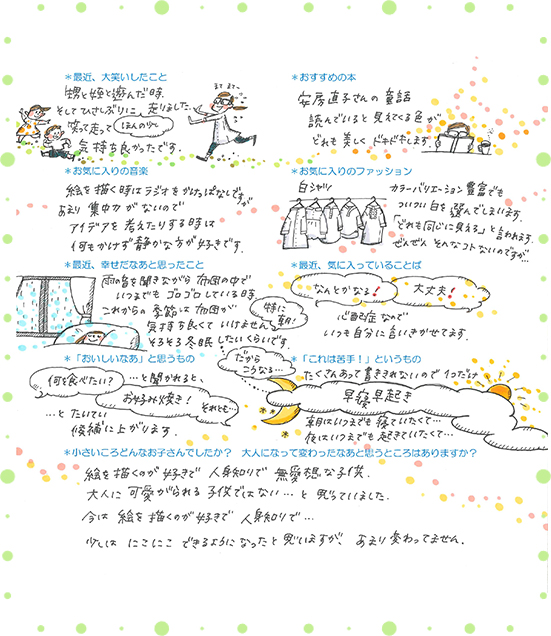 ＊最近、大笑いしたこと
甥と姪と遊んだ時、
そしてひさしぶりに、走りました。
笑って走って ほんの少し
気持ち良かったです。
まて まてー
＊おすすめの本
安房直子さんの童話
読んでいると見えてくる色が
どれも美しく ドキドキします
＊お気に入りの音楽
絵を描く時はラジオをかけっぱなしですが
あまり集中力がないので
アイデアを考えたりする時は
何もかけず静かな方が好きです。
＊お気に入りのファッション
白シャツ
カラーバリエーション豊富でも
ついつい白を選んでしまいます。
「どれも同じに見える」と言われます。
ぜんぜんそんなコトないのですが…
＊最近、幸せだなあと思ったこと
雨の音を聞きながら布団の中で
いつまでもゴロゴロしている時
これからの季節は布団が
気持ち良くていけません
そろそろ冬眠したいくらいです。
特に朝!
だから
こうなる…
＊最近、気に入っていることば
なんとかなる!
大丈夫!
心配症なので
いつも自分に言いきかせてます。
＊「おいしいなあ」と思うもの
何を食べたい?
…と聞かれると、
お好み焼き!
それとも…
…とたいてい
候補に上がります。
＊「これは苦手！」というもの
たくさんあって書ききれないので1つだけ
早寝早起き
朝はいつまでも寝ていたくて…
夜はいつまでも起きていたくて…
＊小さいころどんなお子さんでしたか？ 大人になって変わったなあと思うところはありますか？
絵を描くのが好きで 人見知りで 無愛想な子供。
大人に可愛がられる子供ではない…と思っていました。
今は 絵を描くのが好きで 人見知りで…
少しは にこにこ できるようになったと思いますが、あまり変わってません。